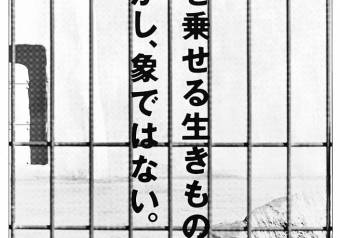 を乗せる生きもの
かし、象ではない。